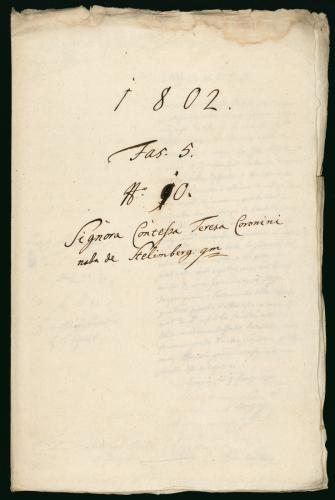 1802.
Fas. 5.
No. 90.
Signora Contessa Teresa Coronini
nata de Stelimberg qm